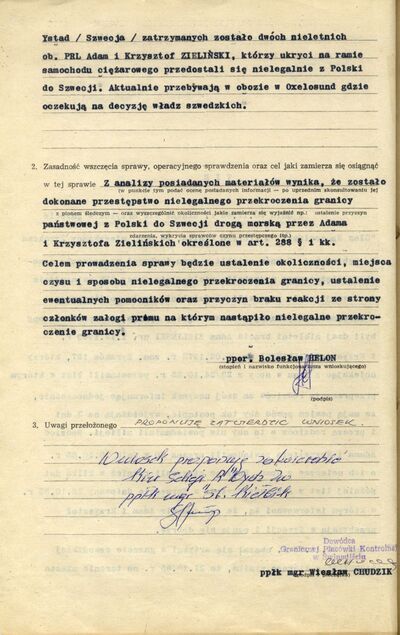 Ystad / Szwecja / zatrzymanych zostało dwóch nieletnich
ob. PRL Adam i Krzysztof ZIELIŃSKI, którzy ukryci na ramie
samochodu ciężarowego przedostali się nielegalnie z Polski
do Szwecji. Aktualnie przebywają w obozie w Oxelosund gdzie
oczekują na decyzję władz szwedzkich.
2. Zasadność wszczęcia sprawy, operacyjnego sprawdzenia oraz cel jaki zamierza się osiągnąć
w tej sprawie Z analizy posiadanych materiałów wynika, że zostało
(w punkcie tym podać ocenę posiadanych informacji — po uprzednim skonsultowaniu jej
dokonane przestępstwo nielegalnego przekroczenia granicy
z pionem śledczym — oraz wyszczególnić okoliczności jakie zamierza się wyjaśnić np.: ustalenie przyczyn
państwowej z Polski do Szwecji drogą morską przez Adama
zdarzenia, wykrycia sprawców czynu przestępczego itp.)
i Krzysztofa Zielińskich określone w art. 288 § 1 kk.
Celem prowadzenia sprawy będzie ustalenie okoliczności, miejsca
czysu i sposobu nielegalnego przekroczenia granicy, ustalenie
ewentualnych pomocników oraz przyczyn braku reakcji ze strony
członków załogi prómu na którym nastąpiło nielegalne przekro-
czenie granicy.
ppor. Bolesław HELON
(stopień i nazwisko funkcjonariusza wnioskującego)
(podpis)
3. Uwagi przełożonego PROPONUJĘ ZATWIERDZIĆ WNIOSEK.
Wniosek proponuję zatwierdzić
ppłk mgr St.
Dowódca
Granicznej Placówki Kontrolnej
w Świnoujściu
ppłk mgr Wiesław CHUDZIK